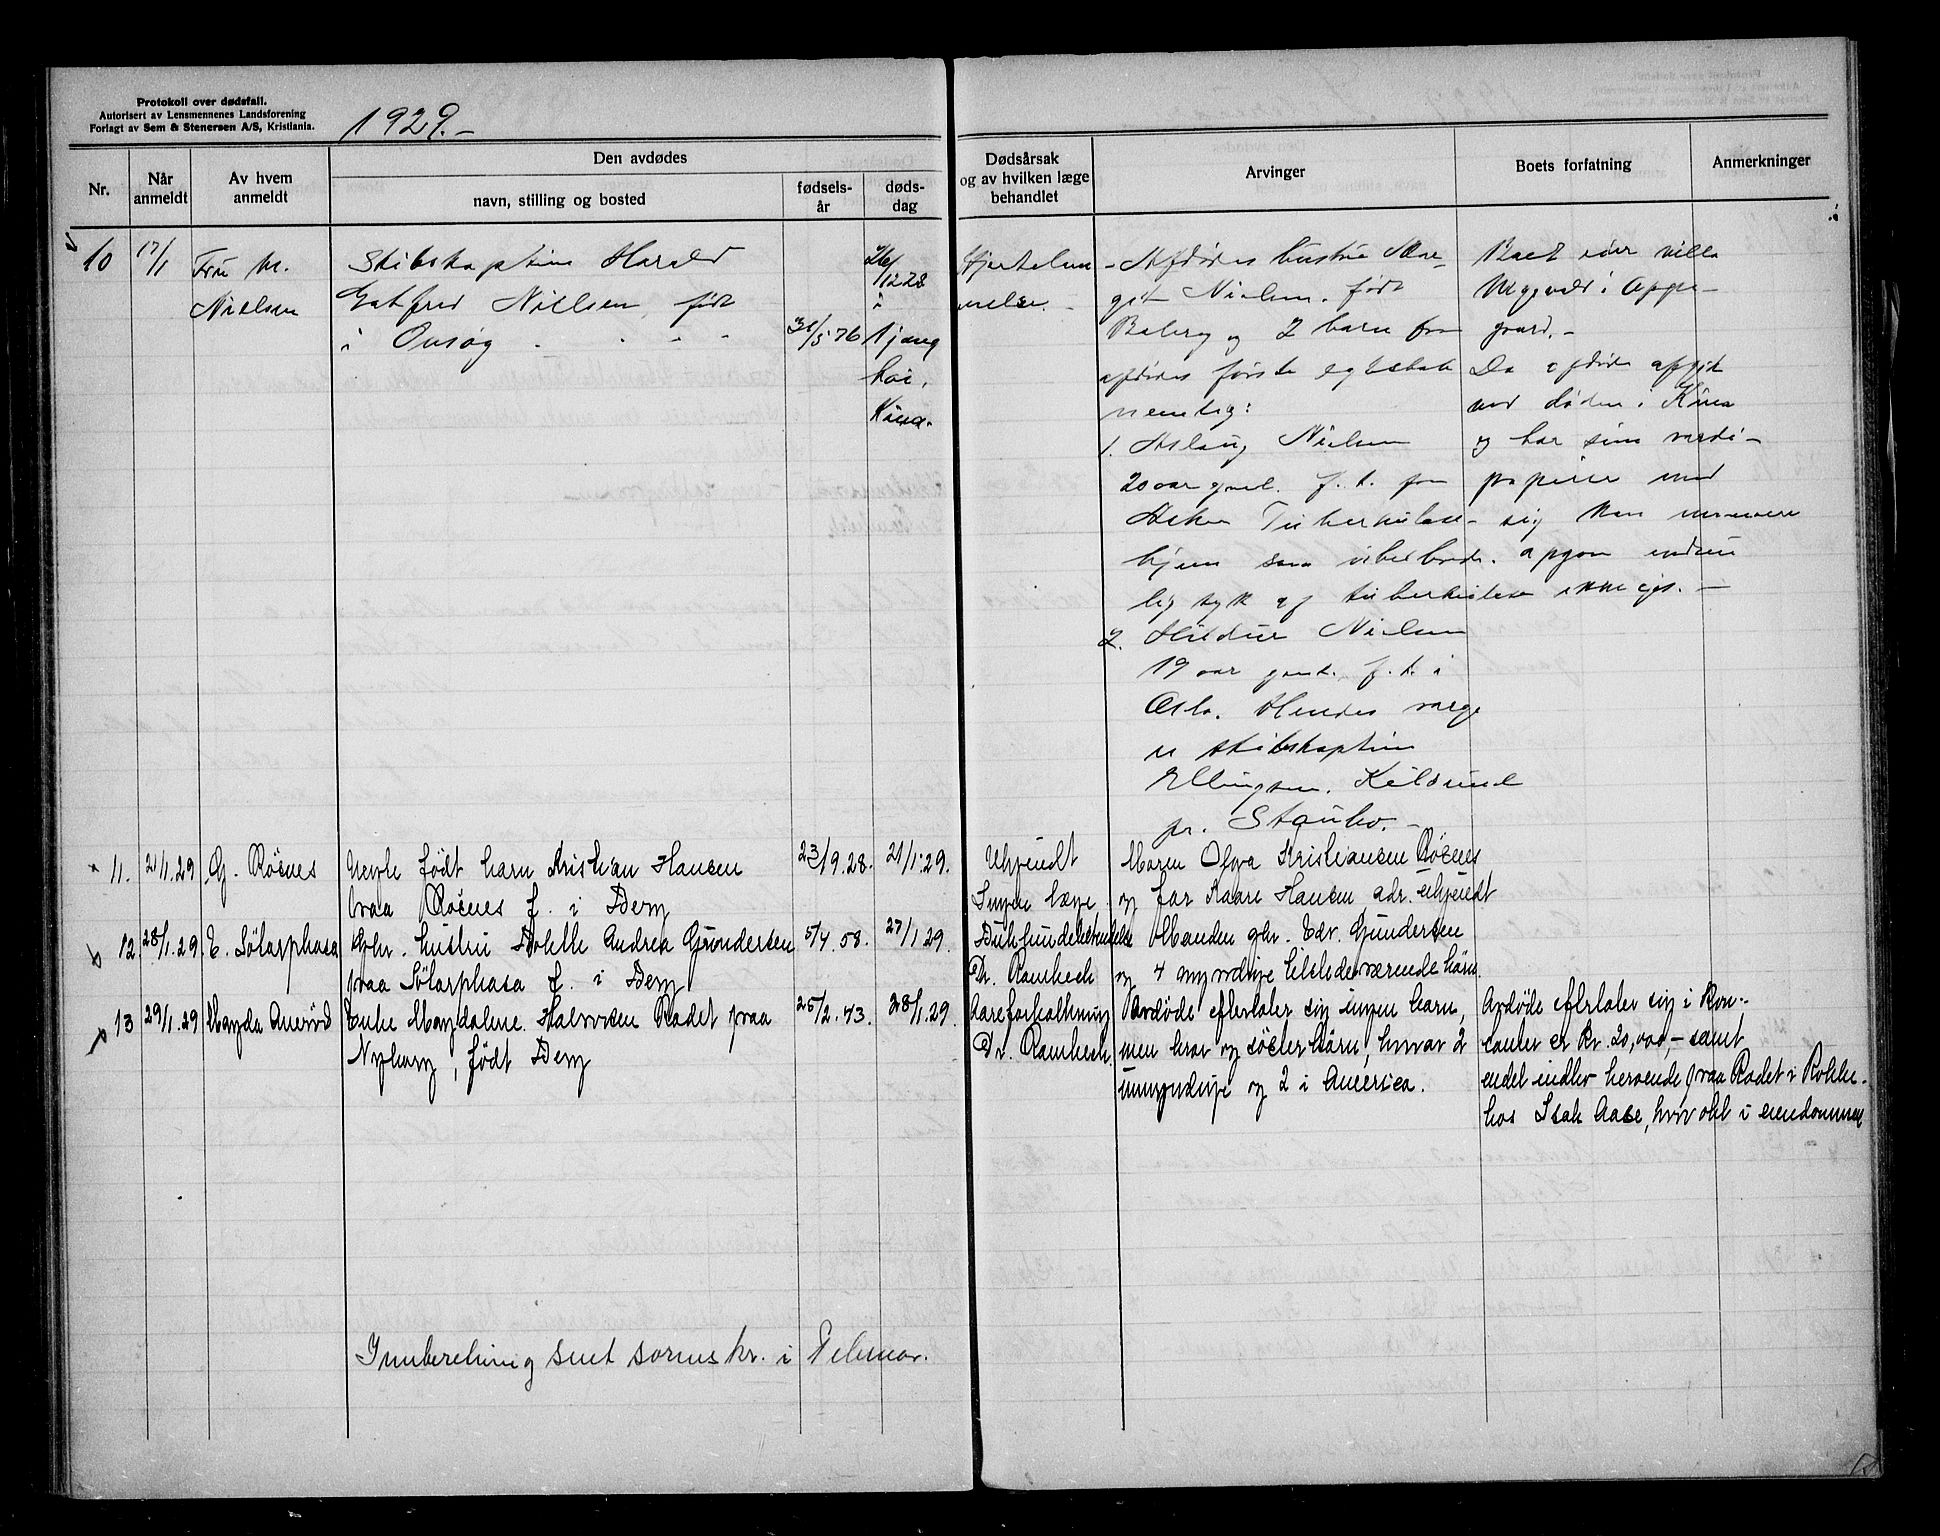 Protokoll over dødsfall.
Autorisert av Lensmennenes Landsforening
Forlagt av Sem & Stenersen A/S, Kristiania.
1929.-
Nr.
Når anmeldt
Av hvem anmeldt
Den avdødes
navn, stilling og bosted
fødsels-år
døds-dag
Dødsårsak og av hvilken læge behandlet
Arvinger
Boets forfatning
Anmerkninger
10
17/1
Fru M.
Nielsen
Skibskaptein Harald
Gotfred Nielsen, født
i Onsøy
31/5 76
26/12 28
i
Kina.
Hjertelam
melse.
Afdødes hustru Mar-
git Nielsen, født
Boberg og 2 barn fra
afdødes første egteskab
nemlig:
1. Aslaug Nielsen
20 aar gml. f. t. paa
Asker Tuberkulose-
hjem som
lig syk af tuberkulose
2. Hildur Nielsen
19 aar gml. f. t. i
Oslo. Hendes verge
er skibskaptein
Ellingsen, Kilsund
pr. Staubo.-
Boet eier villa
i Oppe-
gaard.-
Da afdøde afgik
ved døden i Kina
og har sine verdi-
papirer med
sig kan nærmere
opgave
ikke gis.-
11.
21/1.29
G. Røsnes
Uegte født barn Kristian Hansen
paa Røsnes f. i Berg
23/9.28.
21/1.29.
Ukjendt
Ingen læge
Moren Olga Kristiansen Røsnes
og far Kaare Hansen adr. ukjendt
12.
28/1.29
E.
Gbr. hustru Bolette Andrea Gundersen
paa f. i Berg
5/4.58.
27/1.29.
Dr. Rambech
Manden gbr. Edv. Gundersen
og 4 myndige tilstedeværende børn.
13
29/1.29
Magda Auerød
Enke Magdalene Halvorsen Rødet paa
Nyborg, født Berg
25/2.43.
28/1.29.
Aareforkalkning
Dr. Rambech
Avdøde efterlater sig ingen barn,
men bror og søsterbørn, hvorav 2
umyndige og 2 i Amerika.
Avdøde efterlater sig i Kon-
tanter ca Kr. 20,000,- samt
endel indbo beroende paa Rødet i Rokke
hos Isak Aase, hvorold i eiendommen
Innberetning sent sorenskr. i Februar.